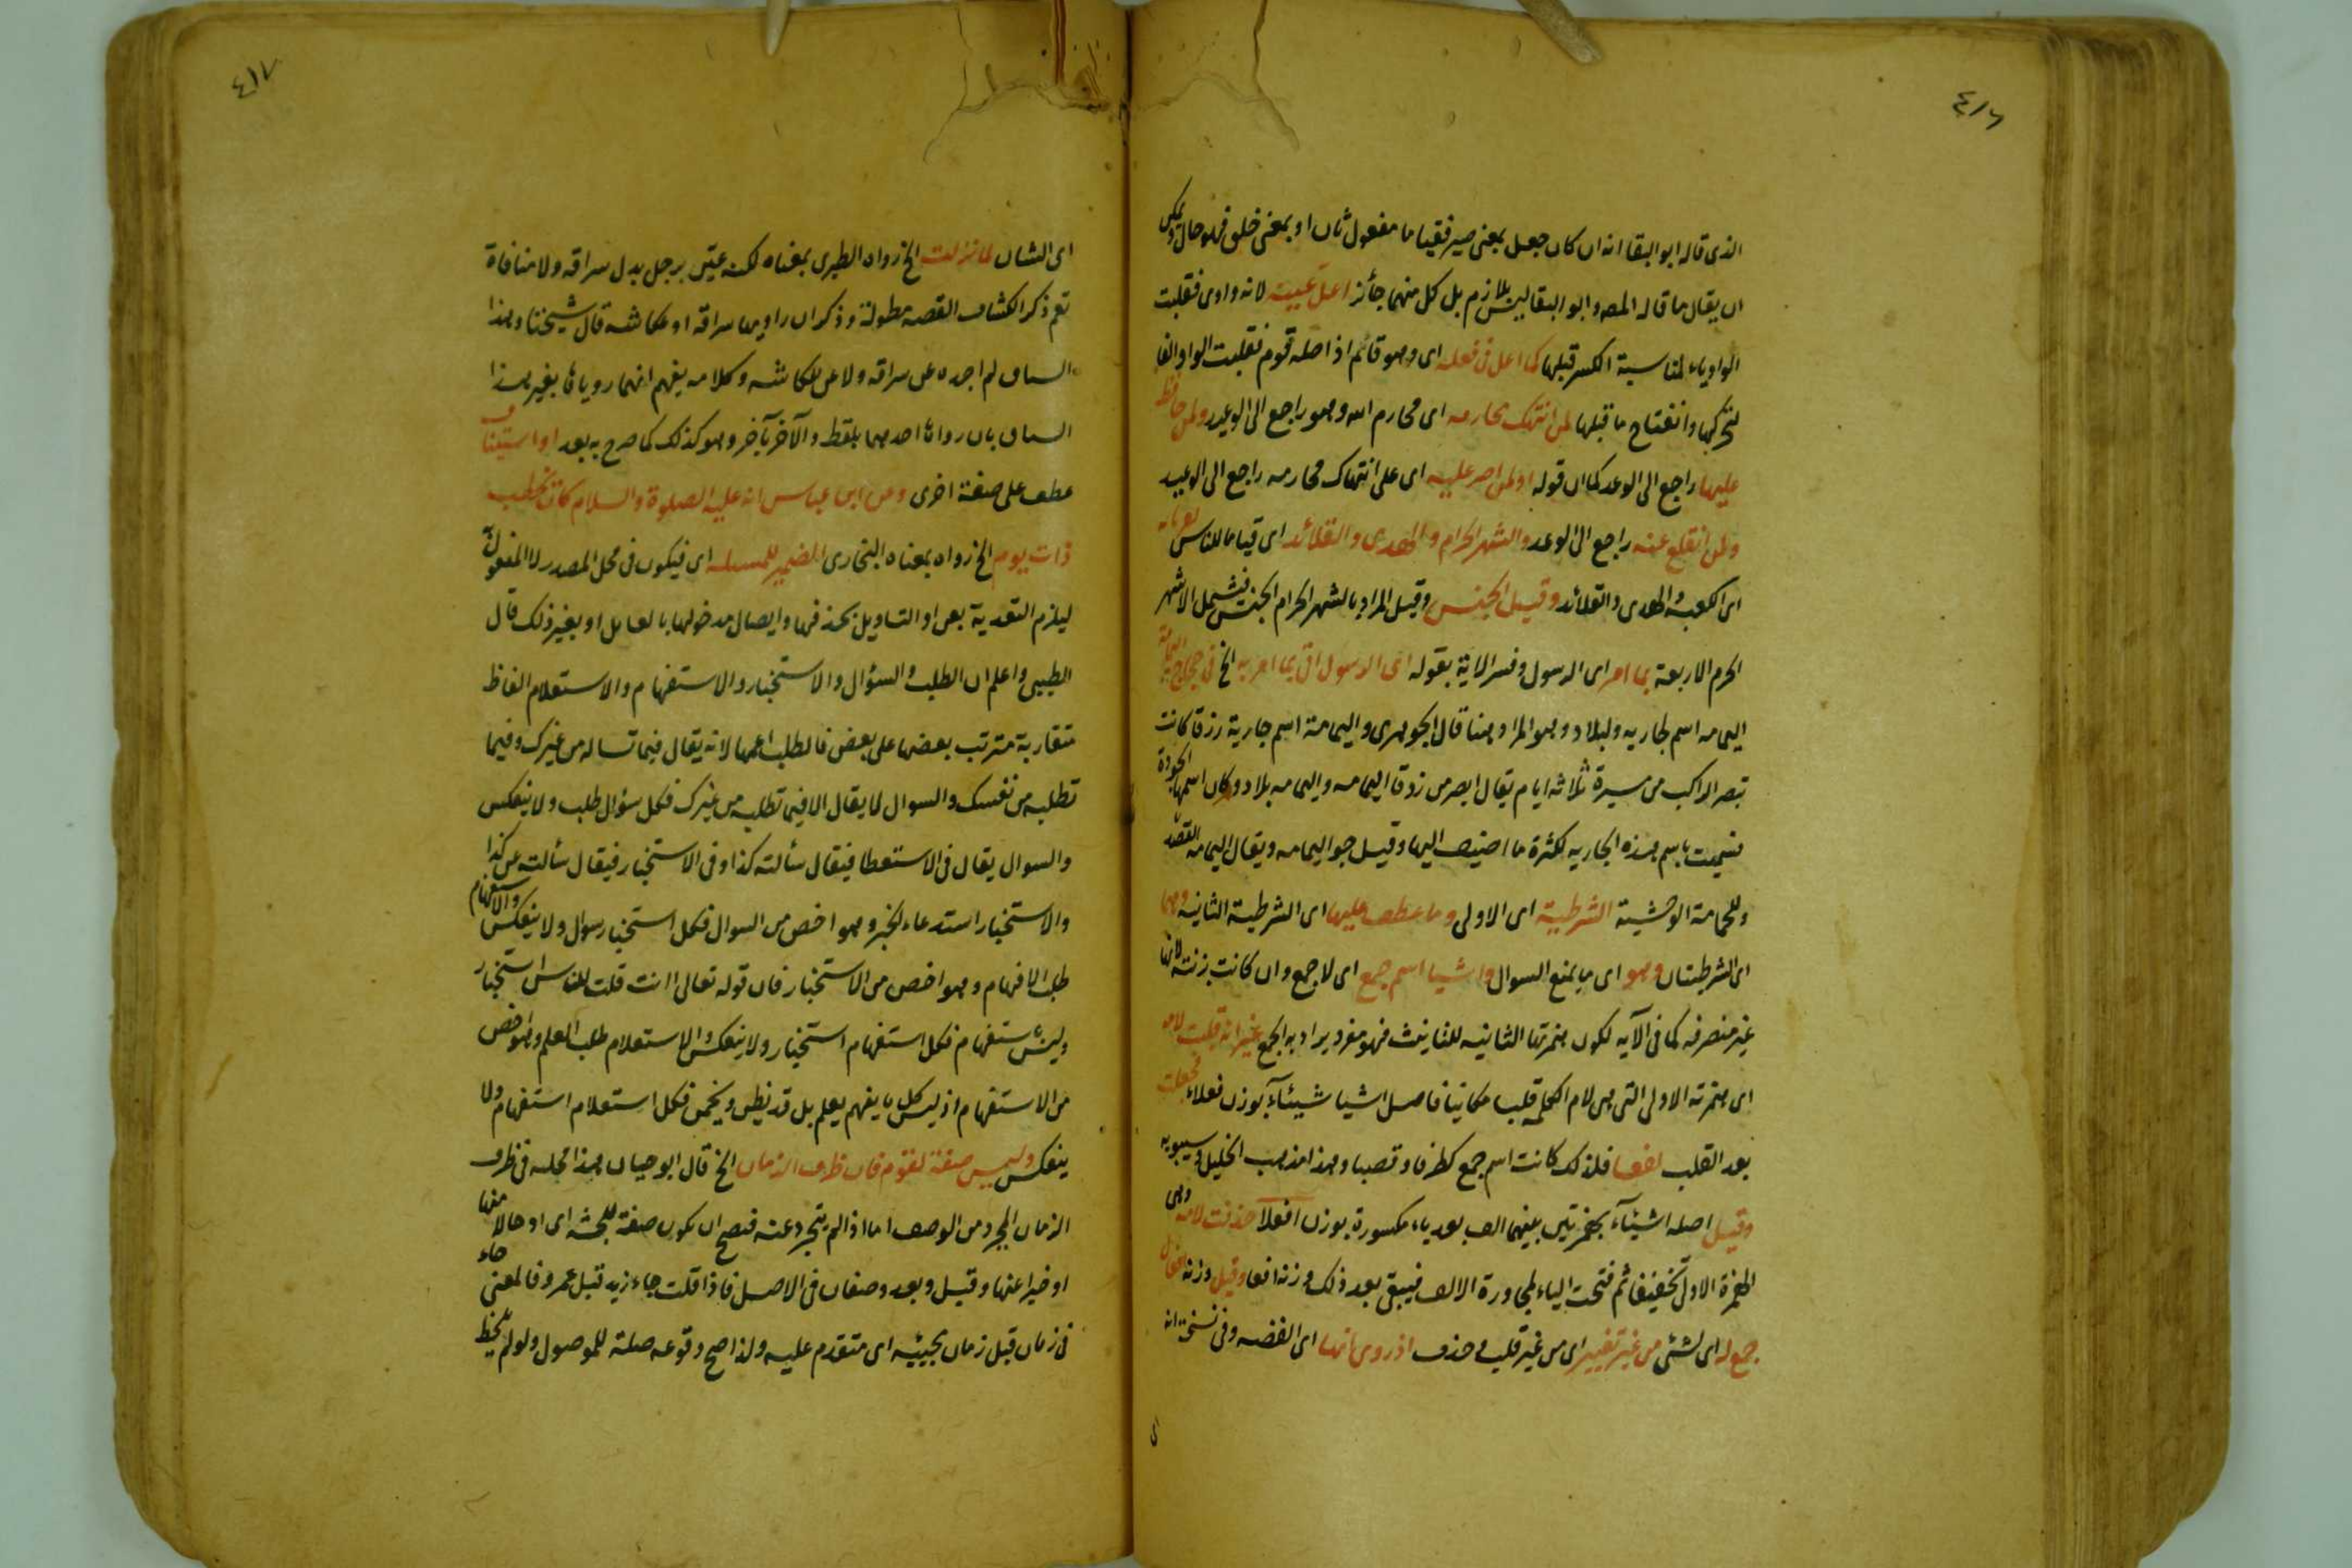 ٤١٦
الذى قاله ابو البقا انه ان كان جعل بمعنى صير فقياما مفعول ثان او بمعنى خلق فهو حال ويمكن
ان يقال ما قاله المص وابو البقا ليس بلازم بل كل منهما جائز اعل عينه لانه واوى فقلبت
الواو ياء لمناسبة الكسر قبلها كما اعل فى فعله اى وهو قائم اذ اصله قوم فقلبت الواو الفا
لتحركها وانفتاح ما قبلها لمن انتهك محارمه اى محارم الله وهو راجع الى الوعيد ولمن حافظ
عليها راجع الى الوعد كما ان قوله او لمن اصر عليه اى على انتهاك محارمه راجع الى الوعيد
ولمن انقلع عنه راجع الى الوعد والشهر الحرام والهدى والقلائد اى قياما للناس
اى الكعبة والهدى والقلائد وقيل الجنس وقيل المراد بالشهر الحرام الجنس فيشمل الاشهر
الحرم الاربعة بما امر اى الرسول وفسر الاية بقوله اى الرسول اتى بما امر به الخ فى حجاج اليمامة
اليمامه اسم لجاريه ولبلاد وهو المراد هنا قال الجوهرى واليمامة اسم جارية زرقا كانت
تبصر الراكب من مسيرة ثلاثه ايام يقال ابصر من زرقا اليمامه واليمامه بلاد وكان اسمها الجو
فسميت باسم هذه الجاريه لكثرة ما اضيف اليها وقيل جو اليمامه ويقال اليمامه القصد
وللحمامة الوحشية الشرطية اى الاولى وما عطف عليها اى الشرطية الثانيه وهما
اى الشرطيتان وهو اى ما يمنع السوال واشيا اسم جمع اى لا جمع وان كانت بزنته لانها
غير منصرفه كما فى الآيه لكون همزتها الثانيه للتانيث فهو مفرد يراد به الجمع غير انه قلبت لامه
اى همزته الاولى التى هى لام الكلمه قلبا مكانيا فاصل اشيا شيئآء بوزن فعلاء فجعلت
بعد القلب لفعا فلذلك كانت اسم جمع كطرفا وقصبا وهذا مذهب الخليل وسيبويه
وقيل اصله اشيئآء بهمزتين بينهما الف بعد ياء مكسورة بوزن افعلآ حذفت لامه وهى
الهمزة الاولى تخفيفا ثم فتحت الياء لمجاورة الالف فيبقى بعد ذلك وزنه افعا وقيل وزنه افعال
جمع له اى لشئى من غير تغيير اى من غير قلب وحذف اذ روى انها اى القضه وفى نسخة انه
اى
٤١٧
اى الشان لما نزلت الخ رواه الطبرى بمعناه لكنه عبّر برجل بدل سراقه ولا منافاة
نعم ذكر الكشاف القصه مطولة وذكر ان راويها سراقه او عكاشه قال شيخنا وهذا
السياق لم اجده عن سراقه ولا عن عكاشه وكلامه يفهم انهما روياها بغير هذا
السياق بان رواها احدهما بلفظ والآخر بآخر وهو كذلك كما صرح به بعد او استيناف
عطف على صفة اخرى وعن ابن عباس انه عليه الصلوة والسلام كان يخطب
ذات يوم الخ رواه بمعناه البخارى الضمير للمسئله اى فيكون فى محل المصدر لا المفعول
ليلزم التعدية بعن او التاويل بحذفها وايصال مدخولها بالعامل او بغير ذلك قال
الطيبى واعلم ان الطلب والسؤال والاستخبار والاستفهام والاستعلام الفاظ
متقاربة مترتب بعضها على بعض فالطلب اعمها لانه يقال فيما تساله من غيرك وفيما
تطلبه من نفسك والسوال لا يقال الا فيما تطلبه من غيرك فكل سؤال طلب ولا ينعكس
والسوال يقال فى الاستعطا فيقال سألته كذا وفى الاستخبار فيقال سألته عن كذا
والاستخبار استدعاء الخبر وهو اخص من السوال فكل استخبار سوال ولا ينعكس والاستفهام
طلب الافهام وهو اخص من الاستخبار فان قوله تعالى اانت قلت للناس استخبار
وليس استفهام فكل استفهام استخبار ولا ينعكس والاستعلام طلب العلم وهو اخص
من الاستفهام اذ ليس كل ما يفهم يعلم بل قد يظن ويخمن فكل استعلام استفهام ولا
ينعكس وليس صفة لقوم فان ظرف الزمان الخ قال ابو حيان هذا محله فى ظرف
الزمان المجرد من الوصف اما اذا لم يتجرد عنه فيصح ان يكون صفة للجثه اى او حالا منها
او خبرا عنها وقبل وبعد وصفان فى الاصل فاذا قلت جاء زيد قبل عمرو فالمعنى جاء
فى زمان قبل زمان مجيئه اى متقدم عليه ولذا صح وقوعه صلة للموصول ولو لم يلحظ